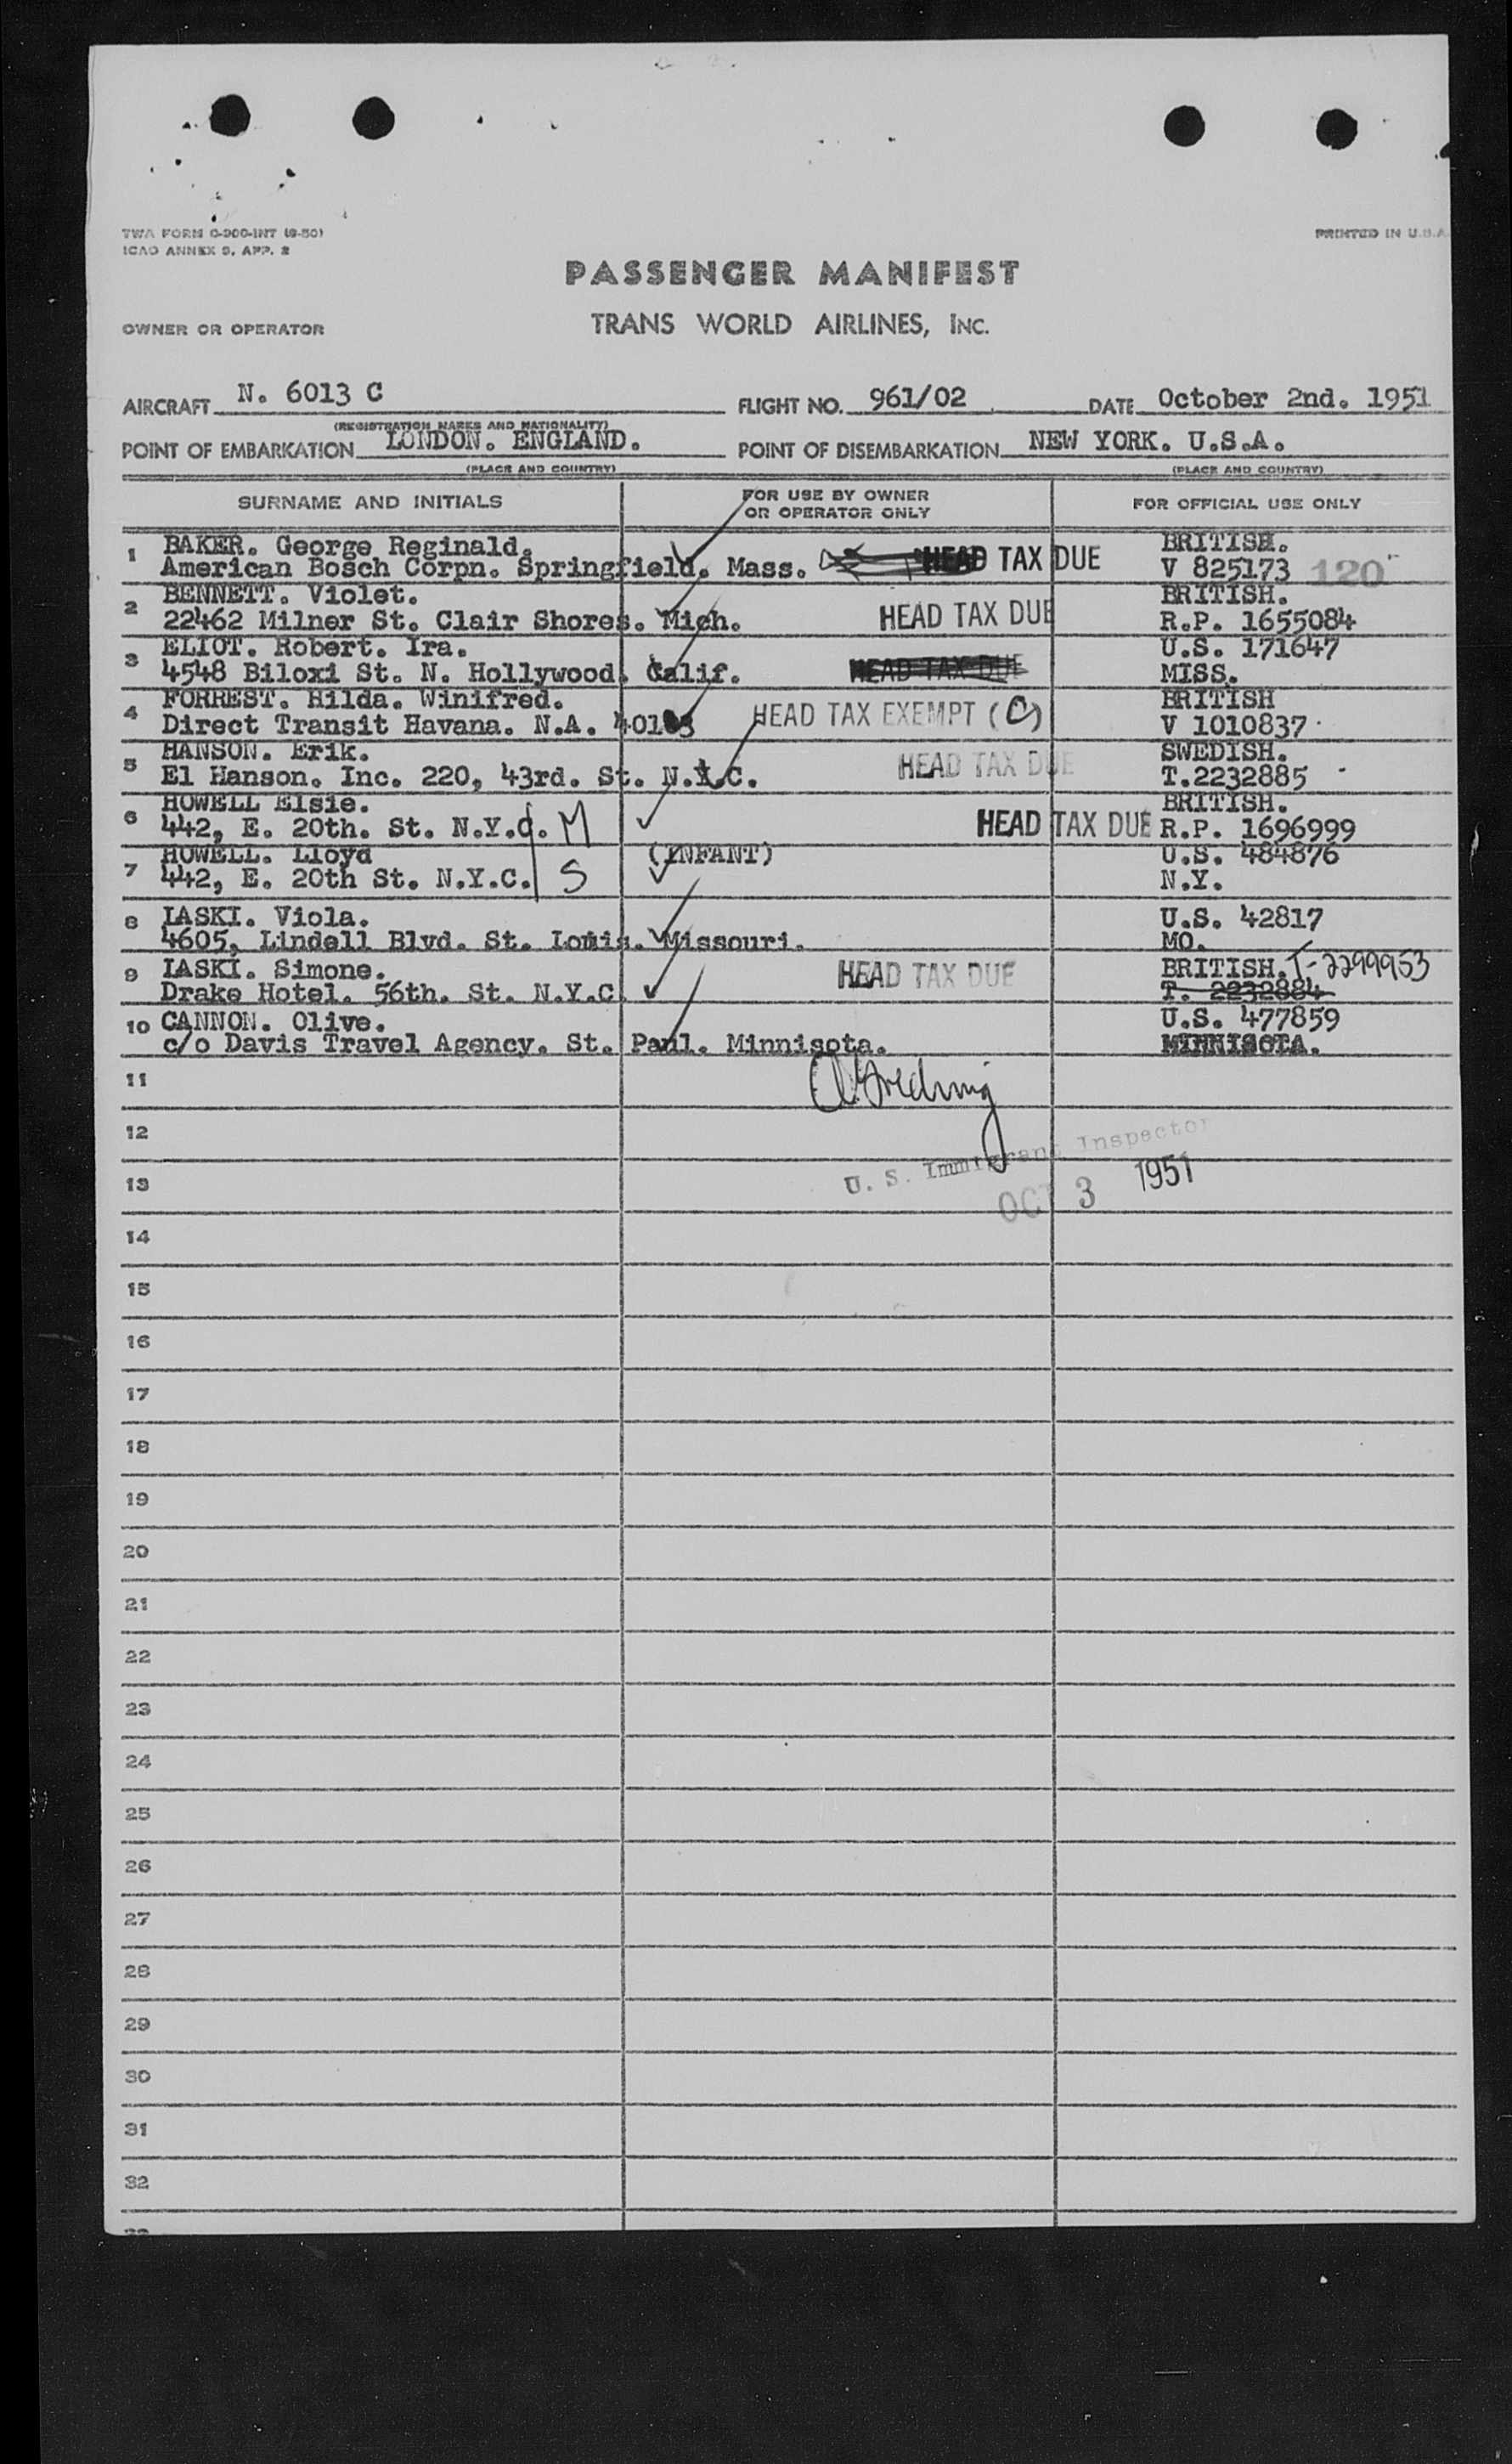 TWA FORM C-900-INT (9-50)
ICAO ANNEX 9, APP. 2
PRINTED IN U.S.A.
PASSENGER MANIFEST
OWNER OR OPERATOR
TRANS WORLD AIRLINES, INC.
AIRCRAFT N. 6013 C FLIGHT NO. 961/02 DATE October 2nd. 1951
(REGISTRATION MARKS AND NATIONALITY)
POINT OF EMBARKATION LONDON. ENGLAND. POINT OF DISEMBARKATION NEW YORK. U.S.A.
(PLACE AND COUNTRY) (PLACE AND COUNTRY)
SURNAME AND INITIALS FOR USE BY OWNER OR OPERATOR ONLY FOR OFFICIAL USE ONLY
1 BAKER. George Reginald. BRITISH.
American Bosch Corpn. Springfield. Mass. HEAD TAX DUE V 825173 120
2 BENNETT. Violet. BRITISH.
22462 Milner St. Clair Shores. Mich. HEAD TAX DUE R.P. 1655084
3 ELIOT. Robert. Ira. U.S. 171647
4548 Biloxi St. N. Hollywood. Calif. HEAD TAX DUE MISS.
4 FORREST. Hilda. Winifred. BRITISH
Direct Transit Havana. N.A. HEAD TAX EXEMPT (C) V 1010837
5 HANSON. Erik. SWEDISH.
El Hanson. Inc. 220, 43rd. St. N.Y.C. HEAD TAX DUE T.2232885
6 HOWELL Elsie. BRITISH.
442, E. 20th. St. N.Y.C. M HEAD TAX DUE R.P. 1696999
7 HOWELL. Lloyd (INFANT) U.S. 484876
442, E. 20th St. N.Y.C. S N.Y.
8 LASKI. Viola. U.S. 42817
4605, Lindell Blvd. St. Louis. Missouri. MO.
9 LASKI. Simone. HEAD TAX DUE BRITISH. T-2299953
Drake Hotel. 56th. St. N.Y.C. T. 2232884
10 CANNON. Olive. U.S. 477859
c/o Davis Travel Agency. St. Paul. Minnisota. MINNISOTA.
11
12
U. S. Immigrant Inspector
13
OCT 3 1951
14
15
16
17
18
19
20
21
22
23
24
25
26
27
28
29
30
31
32